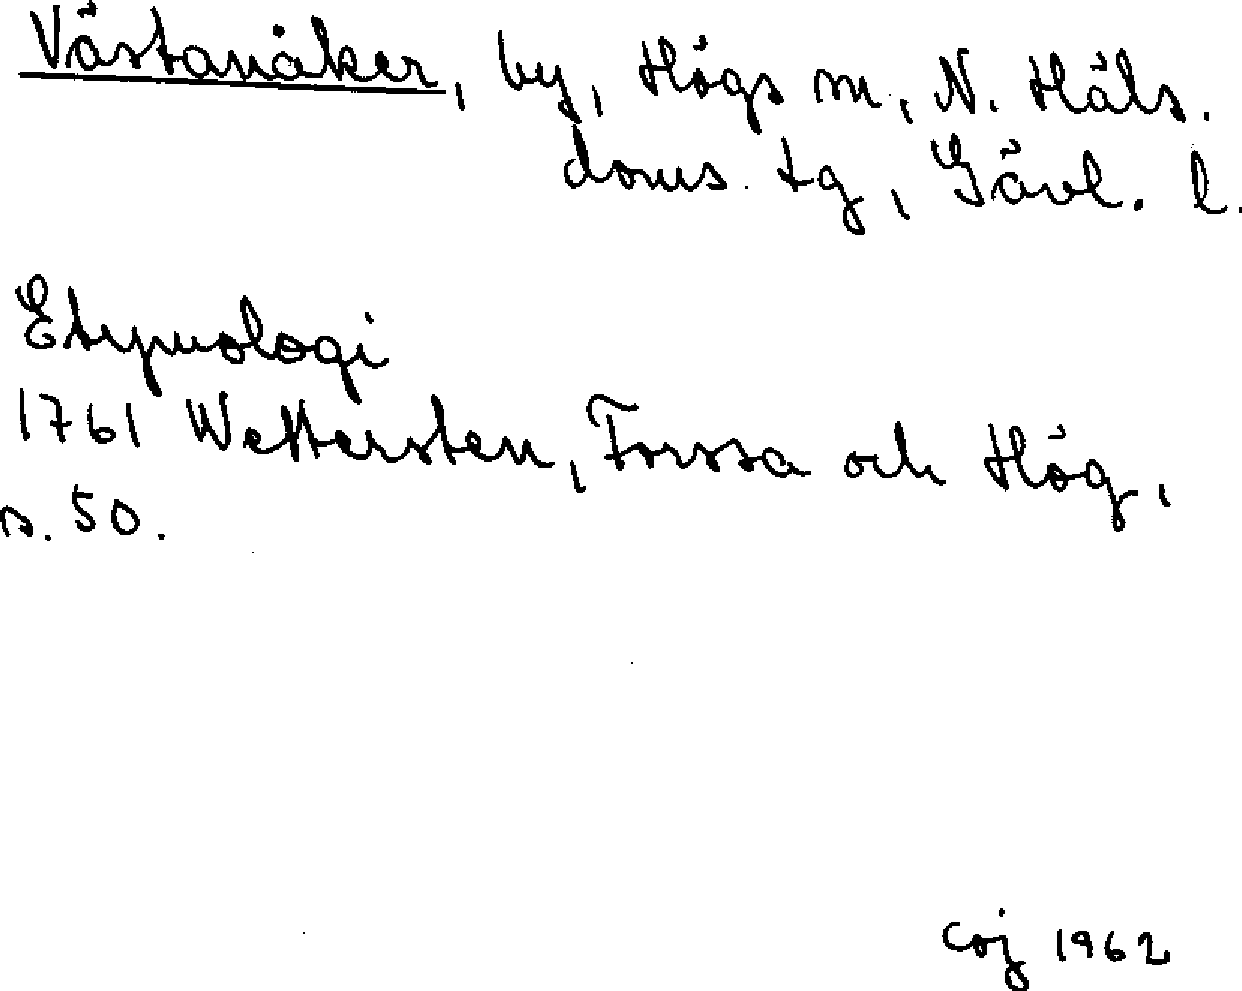 Västanåker, by, Högs sn, N. Häls.
doms. tg, Gävl. l.
Etymologi
1761 Wettersten, Forssa och Hög,
s. 50.
Coj 1962